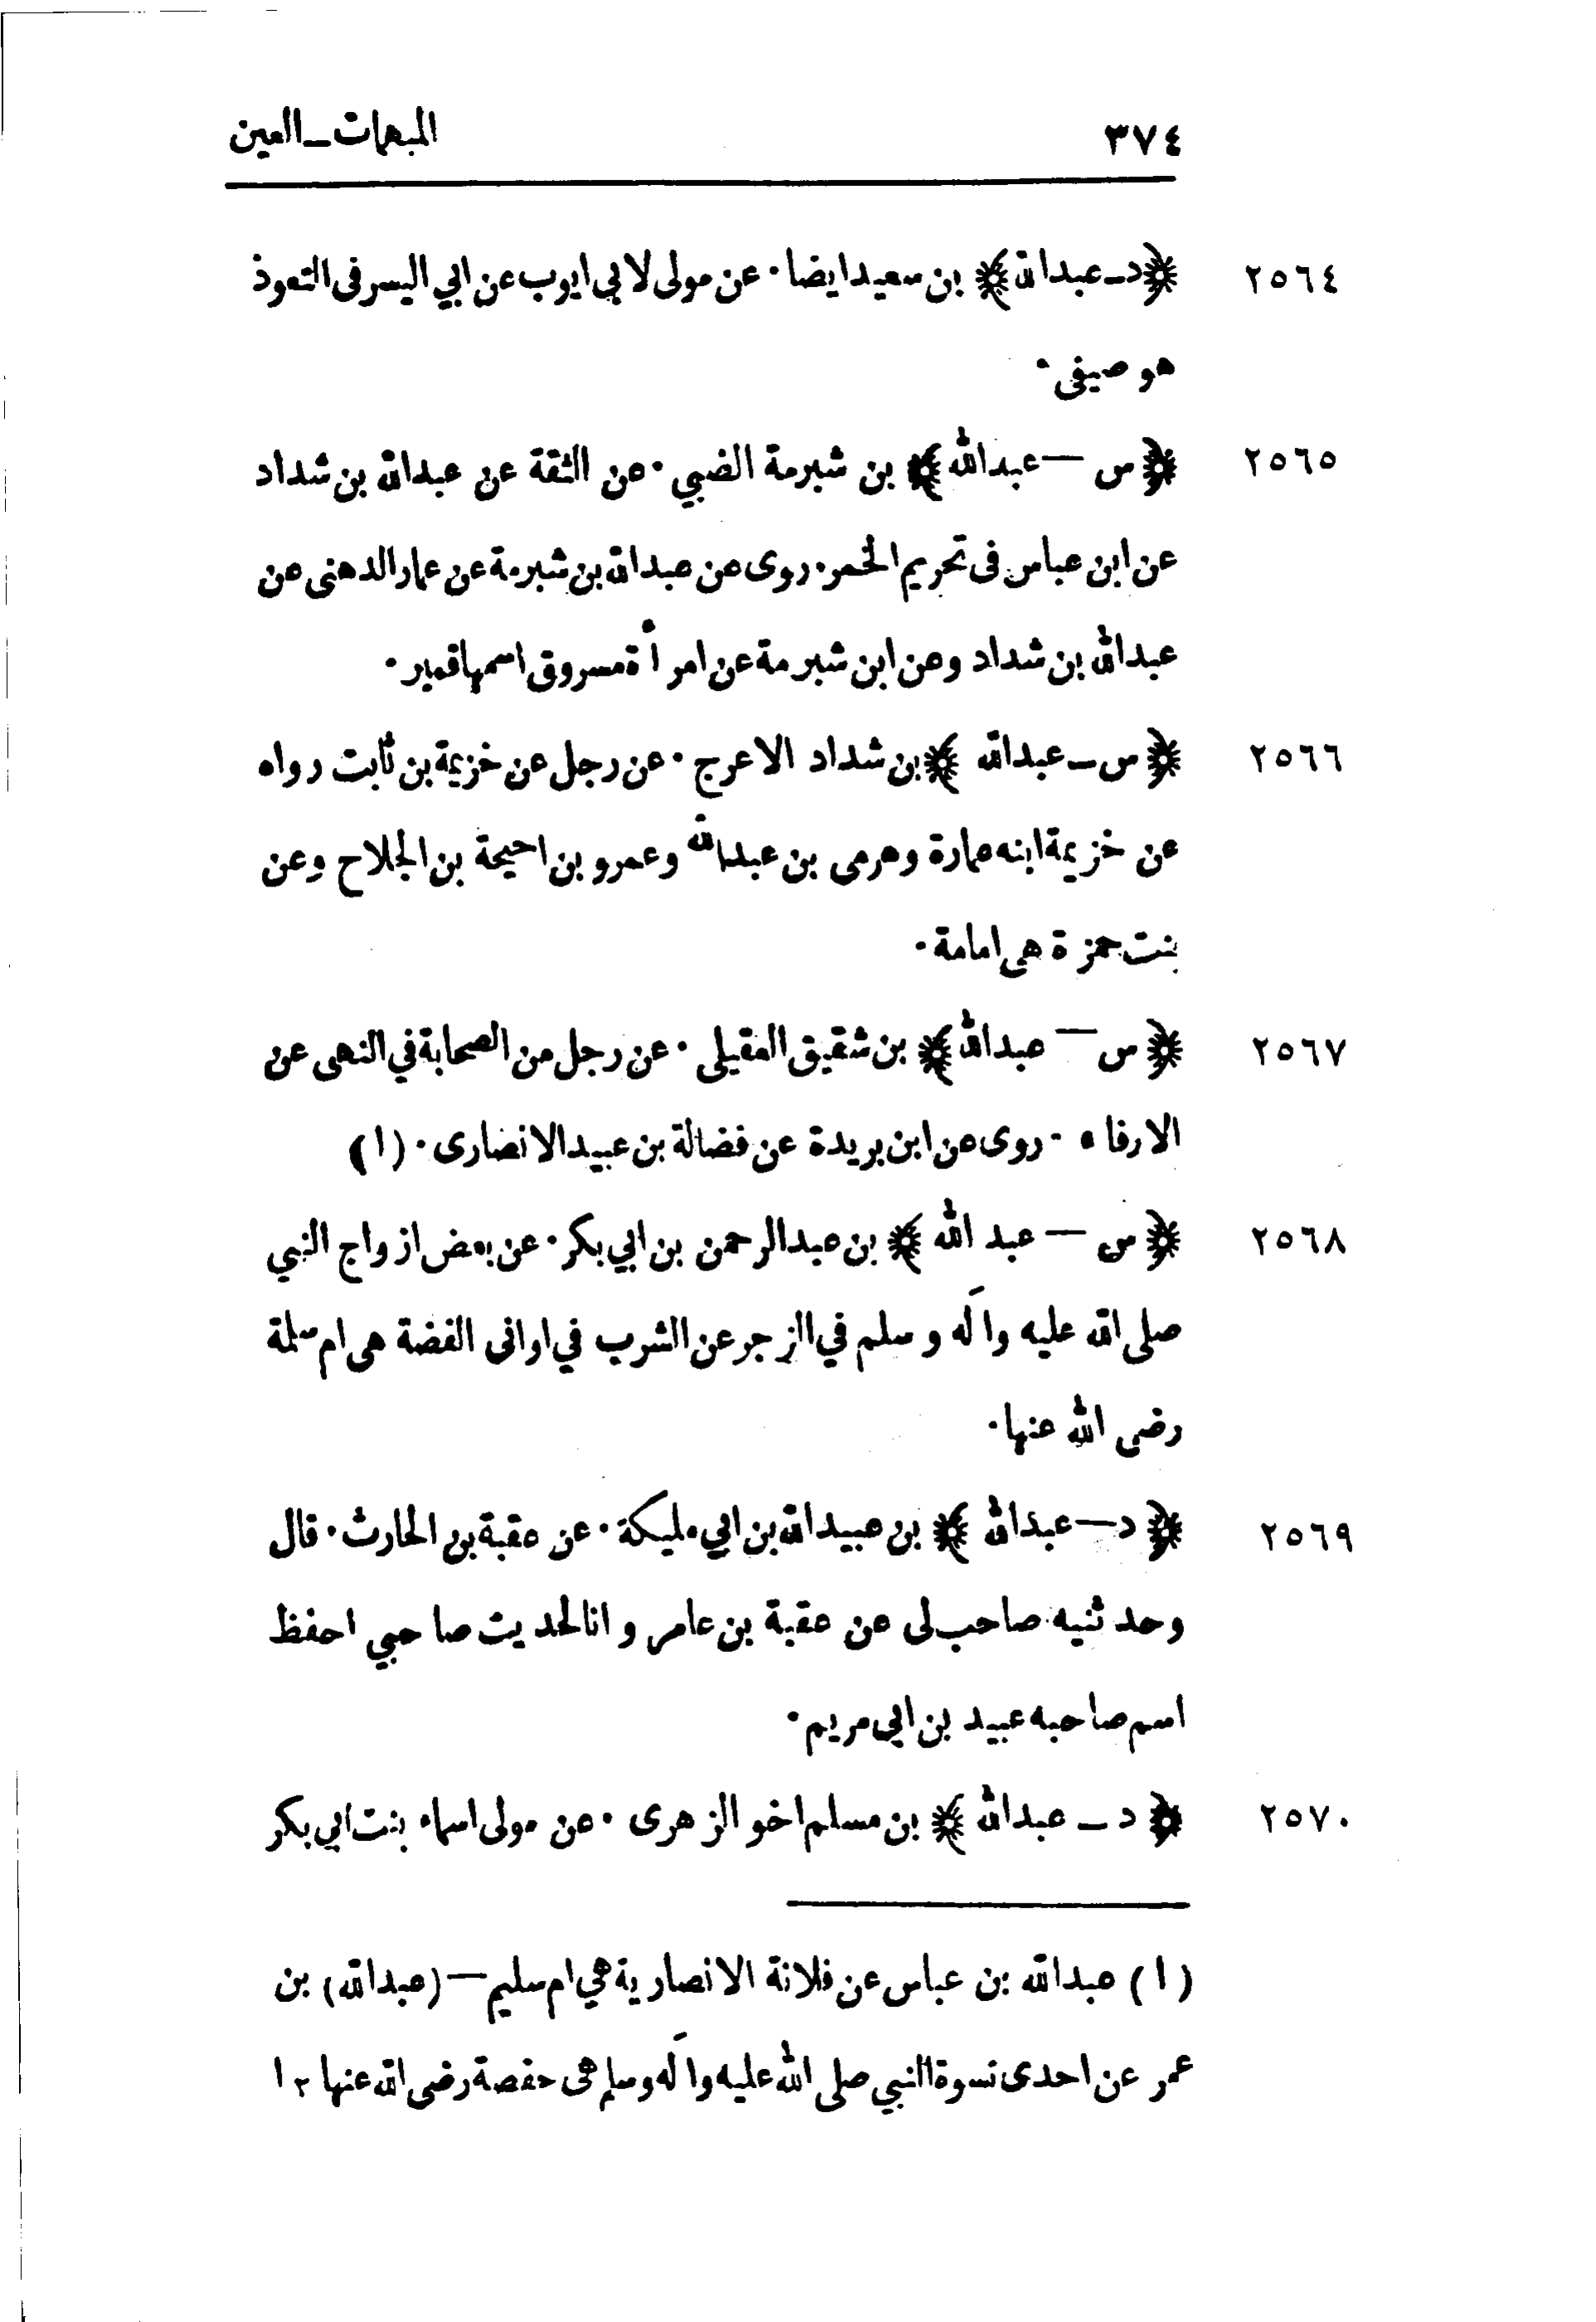 ٣٧٤ المبهمات ـ العين
٢٥٦٤ ﴿د ـ عبدالله﴾ بن سعيد ايضا ٠ عن مولى لابي ايوب عن ابي اليسر فى التعوذ
هو صيفى ٠
٢٥٦٥ ﴿س — عبدالله﴾ بن شبرمة الضبي ٠ عن الثقة عن عبدالله بن شداد
عن ابن عباس فى تحريم الخمر ٠ روى عن عبدالله بن شبرمة عن عمار الدهنى عن
عبدالله بن شداد وعن ابن شبرمة عن امرأة مسروق اسمها قمير ٠
٢٥٦٦ ﴿س ـ عبدالله﴾ بن شداد الاعرج ٠ عن رجل عن خزيمة بن ثابت رواه
عن خزيمة ابنه عمارة وهرمى بن عبدالله وعمرو بن احيحة بن الجلاح وعن
بنت حمزة هى امامة ٠
٢٥٦٧ ﴿س — عبدالله﴾ بن شقيق العقيلى ٠ عن رجل من الصحابة في النهى عن
الارفاه ٠ روى عن ابن بريدة عن فضالة بن عبيد الانصارى ٠ (١)
٢٥٦٨ ﴿س — عبد الله﴾ بن عبدالرحمن بن ابي بكر ٠ عن بعض ازواج النبي
صلى الله عليه وآله وسلم في الزجر عن الشرب في اوانى الفضة هى ام سلمة
رضى الله عنها ٠
٢٥٦٩ ﴿د — عبدالله﴾ بن عبيدالله بن ابي مليكة ٠ عن عقبة بن الحارث ٠ قال
وحدثنيه صاحب لى عن عقبة بن عامر وانا لحديث صاحبي احفظ
اسم صاحبه عبيد بن ابي مريم ٠
٢٥٧٠ ﴿د ـ عبدالله﴾ بن مسلم اخو الزهرى ٠ عن مولى اسماء بنت ابي بكر
(١) عبدالله بن عباس عن فلانة الانصارية هي ام سليم — (عبدالله) بن
عمر عن احدى نسوة النبي صلى الله عليه وآله وسلم هى حفصة رضى الله عنها ١٢